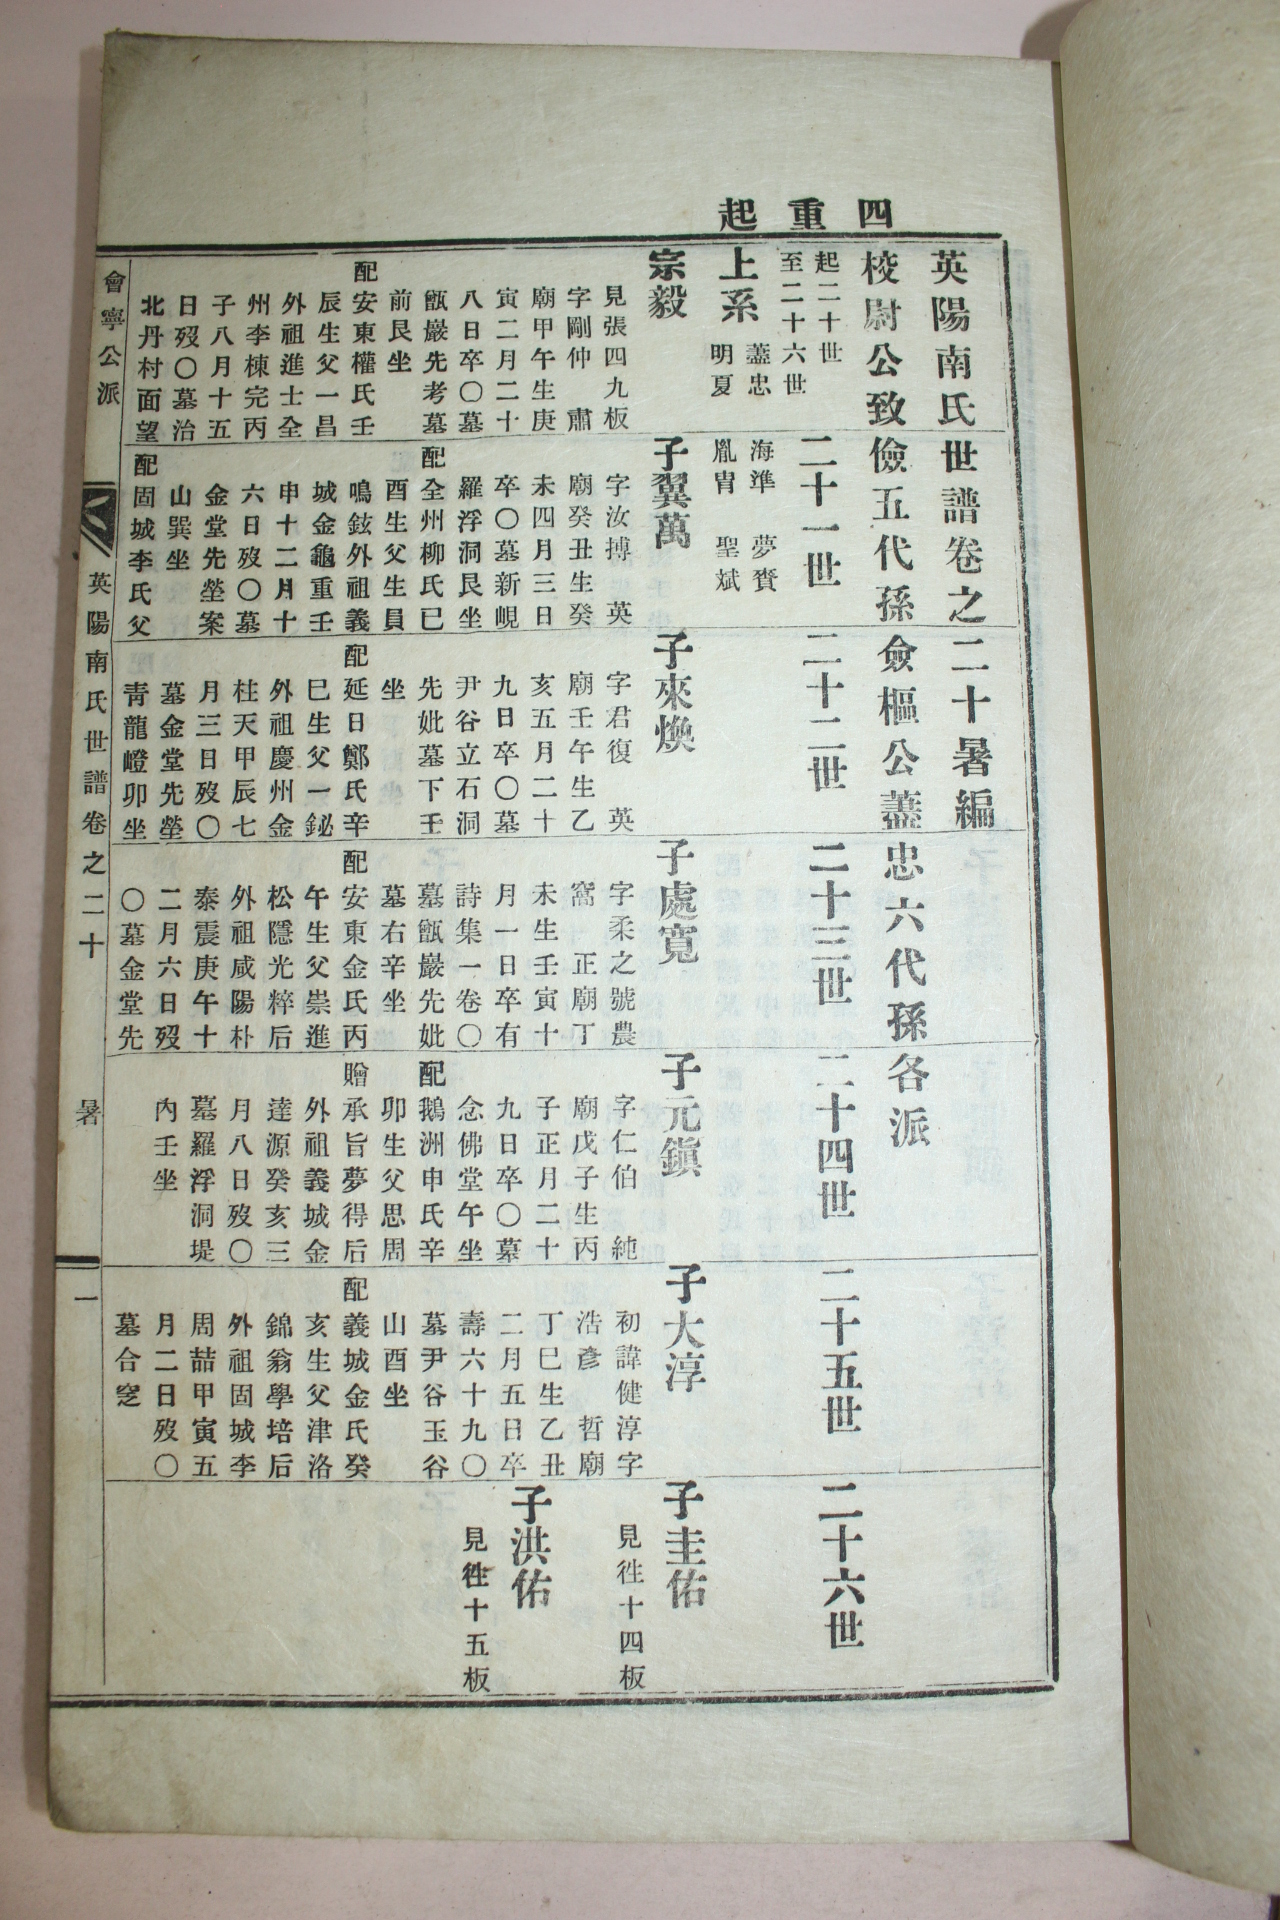 四重起
英陽南氏世譜卷之二十暑編
校尉公致儉五代孫僉樞公藎忠六代孫各派
起二十世
至二十六世
上系
藎忠
明夏
海準
胤冑
夢賚
聖斌
二十一世
二十二世
二十三世
二十四世
二十五世
二十六世
宗毅
見張四九板
字剛仲 肅
廟甲午生庚
寅二月二十
八日卒〇墓
甑巖先考墓
前艮坐
配安東權氏壬
辰生父一昌
外祖進士全
州李棟完丙
子八月十五
日歿〇墓治
北丹村面望
子翼萬
字汝摶 英
廟癸丑生癸
未四月三日
卒〇墓新峴
羅浮洞艮坐
配全州柳氏巳
酉生父生員
鳴鉉外祖義
城金龜重壬
申十二月十
六日歿〇墓
金堂先塋案
山巽坐
配固城李氏父
子來煥
字君復 英
廟壬午生乙
亥五月二十
九日卒〇墓
尹谷立石洞
先妣墓下壬
坐
配延日鄭氏辛
巳生父一鉍
外祖慶州金
柱天甲辰七
月三日歿〇
墓金堂先塋
靑龍嶝卯坐
子處寬
字柔之號農
窩 正廟丁
未生壬寅十
月一日卒有
詩集一卷〇
墓甑巖先妣
墓右辛坐
配安東金氏丙
午生父崇進
松隱光粹后
外祖咸陽朴
泰震庚午十
二月六日歿
〇墓金堂先
子元鎭
字仁伯 純
廟戊子生丙
子正月二十
九日卒〇墓
念佛堂午坐
配鵝洲申氏辛
卯生父思周
贈承旨夢得后
外祖義城金
達源癸亥三
月八日歿〇
墓羅浮洞堤
內壬坐
子大淳
初諱健淳字
浩彥 哲廟
丁巳生乙丑
二月五日卒
壽六十九〇
墓尹谷玉谷
山酉坐
配義城金氏癸
亥生父津洛
錦翁學培后
外祖固城李
周喆甲寅五
月二日歿〇
墓合窆
子圭佑
見往十四板
子洪佑
見往十五板
會寧公派
英陽南氏世譜卷之二十
暑
一